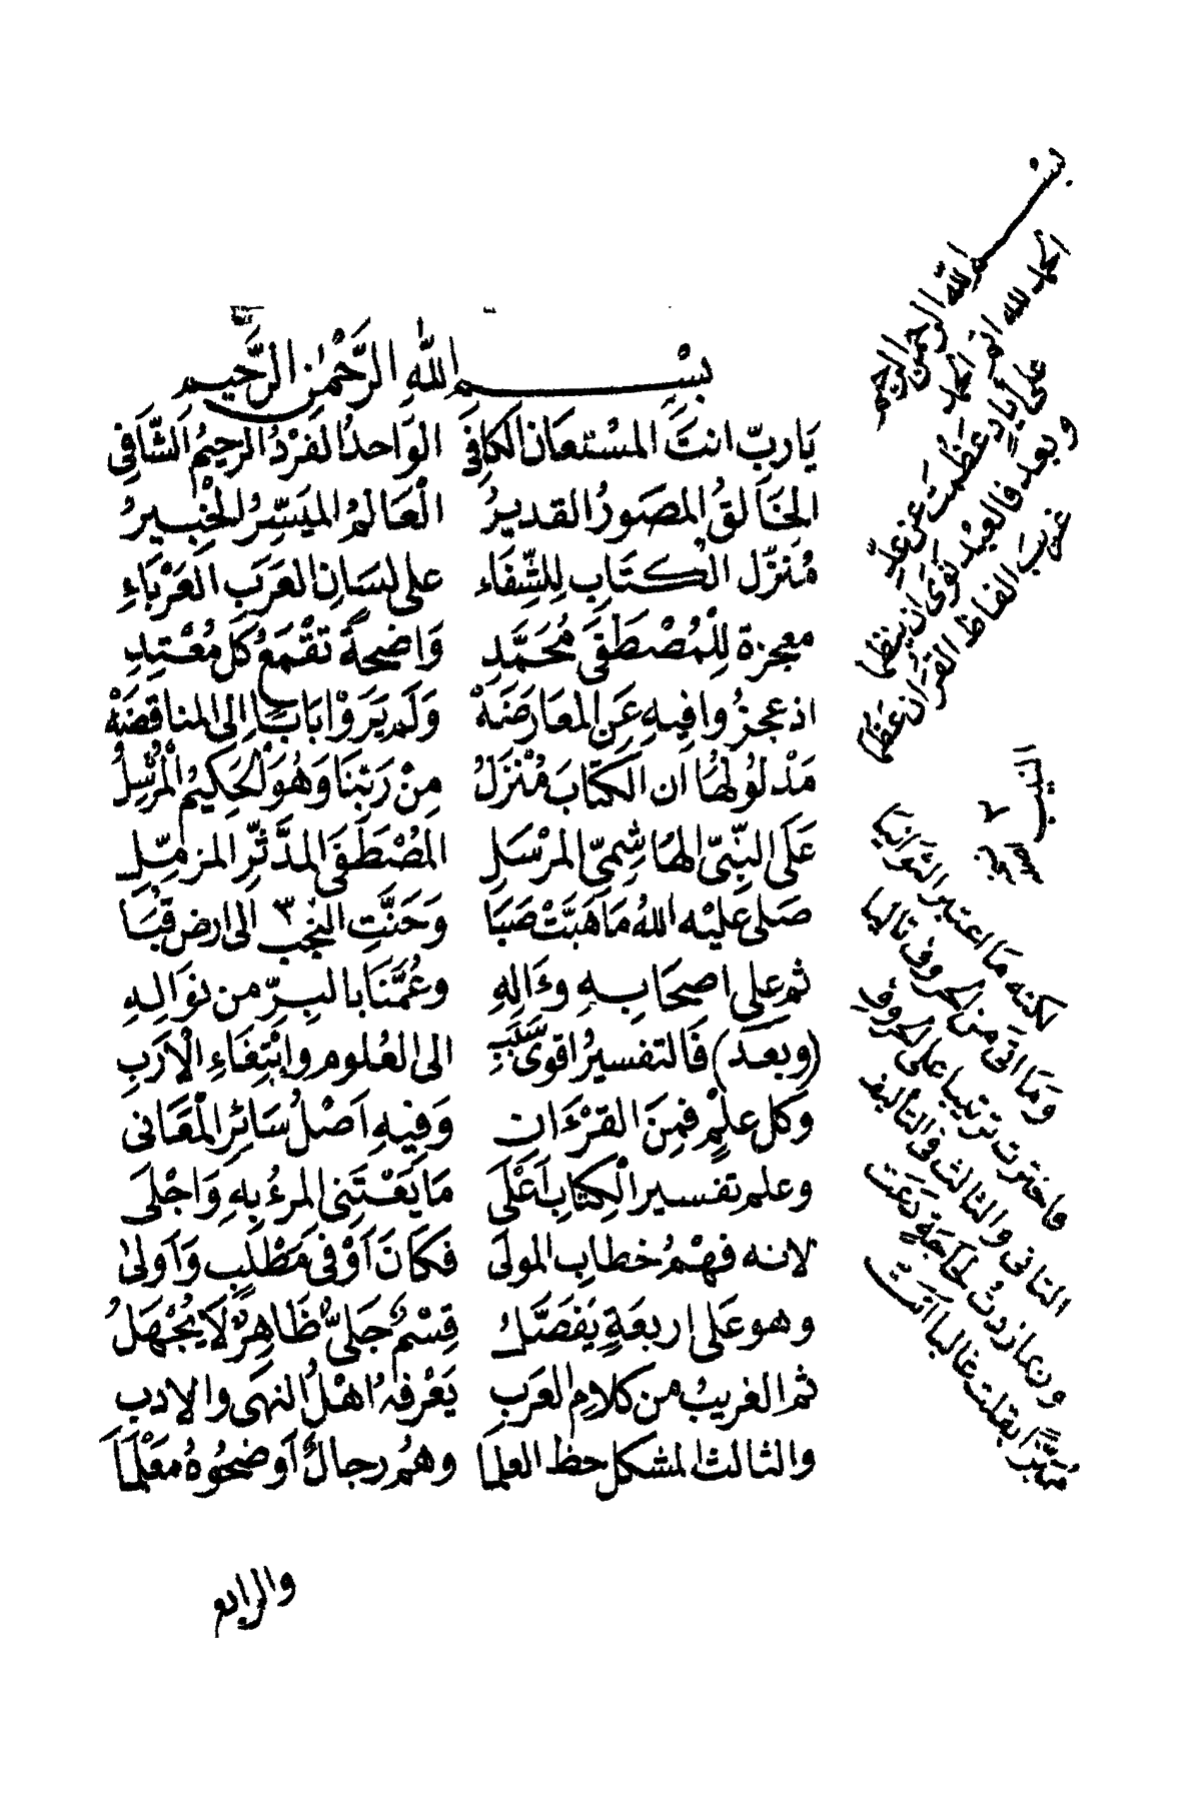 بِسْمِ اللهِ الرَّحْمٰنِ الرَّحِيمِ
يَا رَبِّ انتَ المسْتعَان الكَافِيَ الوَاحدُ الفَرْدُ الرحِيمُ الشَّافِي
الخَالقُ المصَورُ القديرُ الْعَالمُ الميَسِّرُ الخَبِيرُ
مُنَزّل الكتَابِ لِلشِّفَاء على لسَانِ العَرَبِ العَرْبَاءِ
معجزة لِلْمُصْطَفَى مُحَمَّدِ وَاضِحةً تقْمَعُ كلَّ مُعْتدِ
اذ عجزُوا فِيهِ عَنِ المعَارضَهْ وَلَم يَرَوْا بَابًا اِلى المناقضَهْ
مَدْلولهَا ان الكتَابَ مُنْزَلُ مِنْ رَبّنَا وَهُوَ الحَكيمُ الْمُرْسِلُ
عَلَى النّبِىّ الهَاشِمِىّ المرْسَلِ المُصْطَفَى المدَّثّرِ المزمّلِ
صَلى عَليْه اللهُ مَا هَبَّتْ صَبَا وَحَنَّتِ النجْب الى ارض قبَا
ثم على اصحَابِهِ وءَالهِ وعُمَّنَا بالبِرّ من نوَالِهِ
(وبعدَ) فَالتفسيرُ اقوى سَبَبِ الى العُلومِ وابْتِغَاءِ الْاَرَبِ
وَكل علمٍ فمِنَ القرْءَانِ وَفِيهِ اَصْلُ سَائرِ الْمَعَانى
وعلم تفسير الْكتَابِ اَعْلَى مَا يَعْتَنِى المرءُ بِهِ وَاجْلَى
لانه فهْمُ خطابِ المولَى فكَانَ اَوْفى مَطْلَبٍ وَاَولىٰ
وهو عَلى اربعَةٍ يُفَصَّلُ قِسْمٌ جَلىٌّ ظَاهِرٌ لَا يُجْهَلُ
ثم الغريبُ من كلامِ العَربِ يَعْرِفهُ اهْلُ النهَى والادبِ
والثالث المشكل حظ العلمَا وهُم رجالٌ اَوضحُوهُ مَعْلَمَا
والرابع
بسم الله الرحمن الرحيم
الحمد لله اتم الحمد
على أيادٍ عظمت عن عدّ
وبعد فالعبْد نَوَى ان ينظما
غريبَ الفاظ القرَان عظما
لكنه مَا اعتبر الثوانيا
وَمَا اتى من الحروف تاليا
فاخترت ترتيبا على الحروف
الثانى والثالث فى التأليف
وربما زدتُ لحَاجَةٍ دَعَت
مُمَيَّزًا بقلت غالبا اتَت